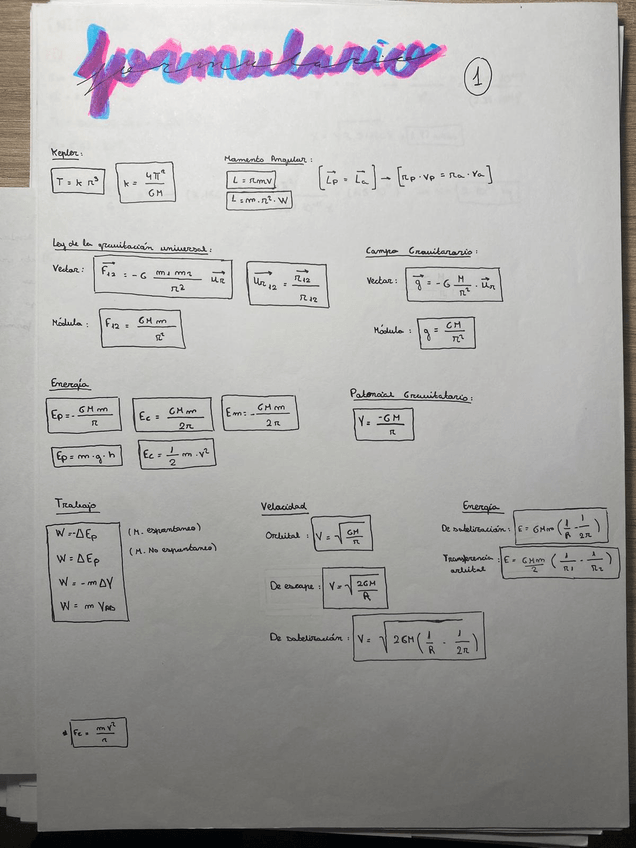 formulario
1
Kepler:
T = k r³
k = 4π² / GM
Momento Angular:
L = r m v
L = m · r² · W
[L⃗p = L⃗a] → [rp · vp = ra · va]
Ley de la gravitación universal:
Vector: F⃗12 = -G m1 m2 / r² u⃗r
u⃗r12 = r⃗12 / r12
Módulo: F12 = G M m / r²
Campo Gravitatorio:
Vector: g⃗ = -G M / r² · u⃗r
Módulo: g = GM / r²
Energía
Ep = - G M m / r
Ec = G M m / 2r
Em = - G M m / 2r
Ep = m · g · h
Ec = 1/2 m · v²
Potencial Gravitatorio:
V = -GM / r
Trabajo
W = -ΔEp (M. espontaneo)
W = ΔEp (M. No espontaneo)
W = -m ΔV
W = m VAB
Velocidad
Orbital: V = √(GM / r)
De escape: V = √(2GM / R)
De satelización: V = √(2GM (1/R - 1/2r))
Energía
De satelización: E = GMm (1/R - 1/2r)
Transferencia orbital: E = GMm / 2 (1/r1 - 1/r2)
* Fc = mv² / r